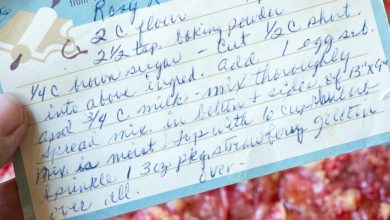 from Rosy
2 C flour
2½ tsp. baking powder
¼ C brown sugar - Cut ½ C short
into above ingred. add 1 egg
and ¾ C milk - mix thoroughly
spread mix. in bottom & sides of 13"x9"
Mix is moist - top with 6 C rhubarb
sprinkle 1 3oz pkg. strawberry gelatin
over all. over-